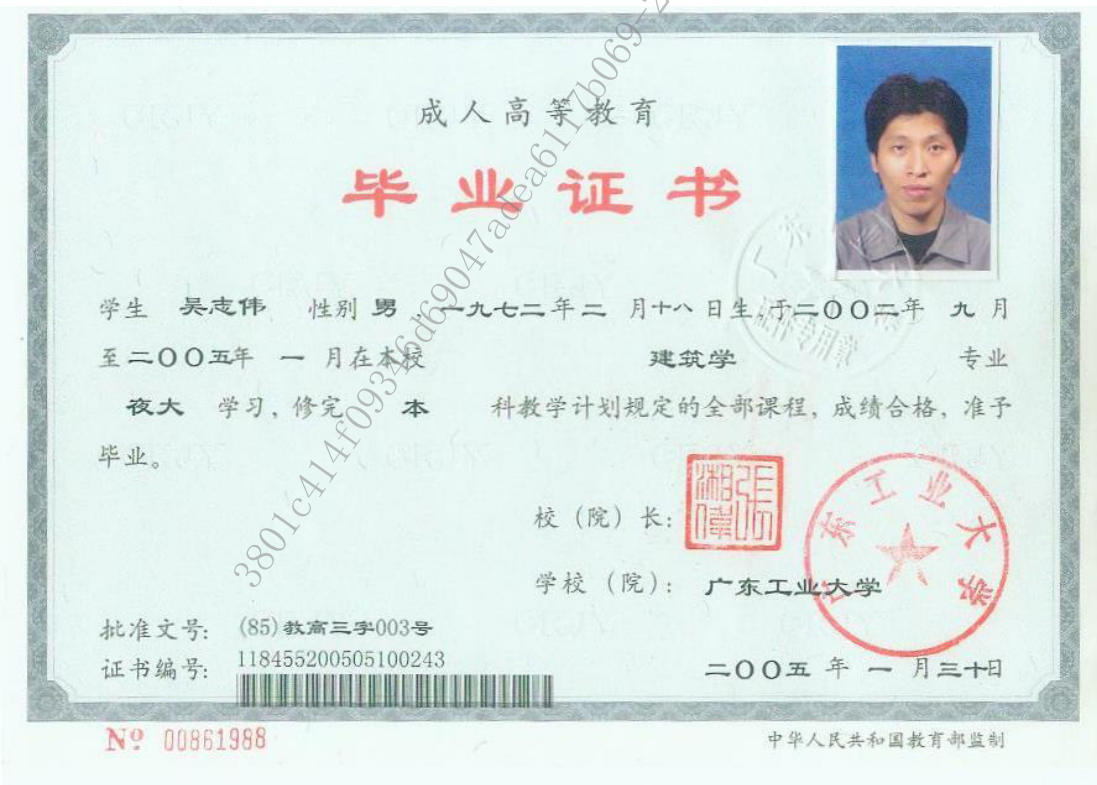 成人高等教育
毕业证书
学生 吴志伟 性别 男,一九七二年二 月十八日生,于二〇〇二年 九月
至二〇〇五年 一 月在本校 建筑学 专业
夜大 学习,修完 本 科教学计划规定的全部课程,成绩合格,准予
毕业。
校(院)长:
张湘伟
学校(院): 广东工业大学
广东工业大学
批准文号: (85)教高三字003号
证书编号: 118455200505100243
二〇〇五 年 一 月三十日
Nº 00861988
中华人民共和国教育部监制